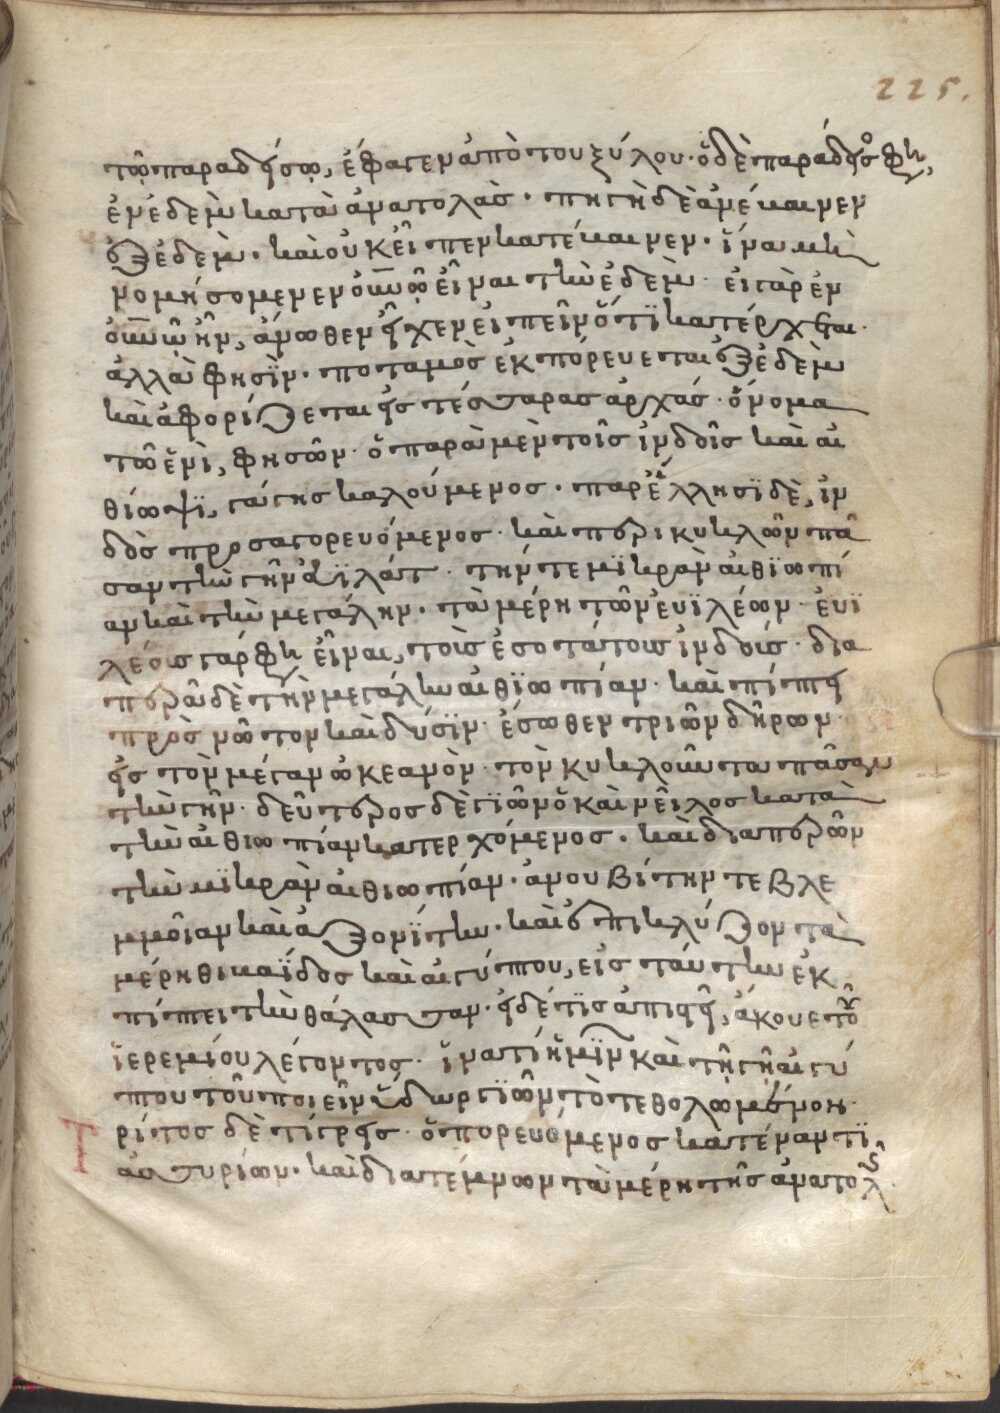 225.
τῶ παραδείσω, ἔφαγεν ἀπὸ τοῦ ξύλου· ὁ δὲ παράδεισος φη,
ἐν ἐδὲμ κατὰ ἀνατολὰς· πηγὴ δὲ ἀνέβαινεν
ἐξ ἐδὲμ· καὶ οὐκ εἶπεν κατέβαινεν· ἵνα μὴ
νομήσομεν ἐν οὐνῶ εἶναι τὴν ἐδὲμ· εἰ γὰρ ἐν
οὐνῶ ἦν, ἄνωθεν εἶχεν εἰπεῖν ὅτϊ κατέρχεται·
ἀλλὰ φησϊν· ποταμὸς ἐκπόρευεται ἐξ ἐδὲμ
καὶ ἀφορίζεται εἰς τέσσαρας ἀρχάς· ὄνομα
τῶ ἑνὶ, φησῶν· ὁ παρὰ μὲν τοῖς ἰνδοῖς καὶ αἰ
θίωψϊ, γάγης καλούμενος· παρ' ἕλλησϊ δὲ, ἰν
δὸς προσαγορευόμενος· καὶ περικυκλῶν πᾶ
σαν τὴν γῆν εὐϊλάτ· τήν τε μϊκρὰν αἰθϊωπί
αν καὶ τὴν μεγάλην· τὰ μέρη τῶν εὐϊλέων· εὐϊ
λέοις γάρ φη εἶναι, τοῖς ἐσοτάτοις ἰνδοίς· δια
περᾶ δὲ τὴν μεγάλην αἰθϊωπίαν· καὶ πίπτει
πρὸς νῶτον καὶ δύσϊν· ἔσωθεν τριῶν δήρων
εἰς τὸν μέγαν ὠκεανὸν· τὸν κυκλοῦντα πᾶσαν
τὴν γῆν· δεύτερος δὲ γϊῶν ὁ καὶ νεῖλος κατὰ
τὴν αἰθιωπίαν κατερχόμενος· καὶ διαπερῶν
τὴν μϊκρὰν αἰθιωπίαν· ἀνουβίτην τε βλε
μμοΐαν καὶ ἀξονίτην· καὶ ἐπικλύζον τὰ
μέρη θικαΐδος καὶ αἰγύπτου, εἰς ταύτην ἐκ
πίπτει τὴν θάλασσαν· εἰ δέ τϊς ἀπιστεῖ, ἀκουέτω
ἱερεμίου λέγοντος· ἵνα τί ἡμῖν καὶ τῆ γῆ αἰγύ
πτου τοῦ ποιεῖν ὕδωρ γϊῶν τὸ τεθολωμένον·
Τρίτος δὲ τίγρης· ὁ πορευόμενος κατέναντϊ
ἀσσυρίων· καὶ διατέμνων τὰ μέρη τῆς ἀνατολῆς